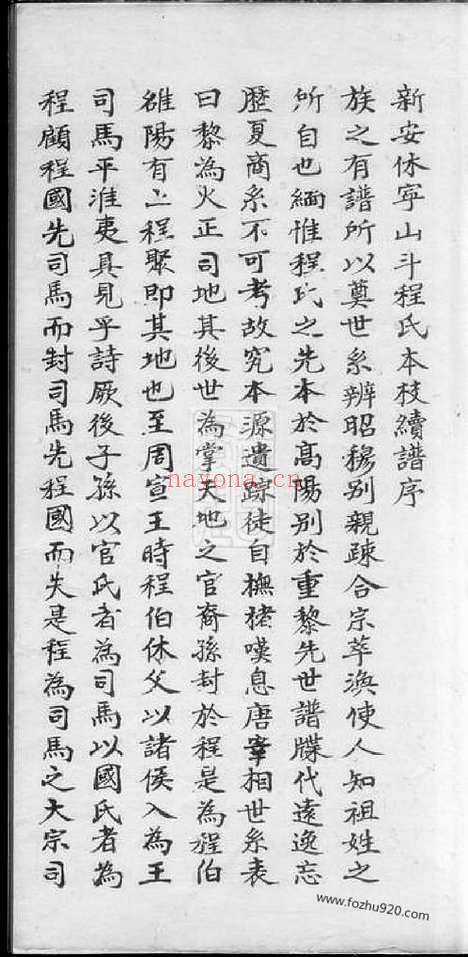 新安休寧山斗程氏本枝續譜序
族之有譜所以奠世系辨昭穆别親疎合宗萃渙使人知祖姓之
所自也緬惟程氏之先本於高陽别於重黎先世譜牒代遠逸忘
歷夏商系不可考故究本源遺跡徒自撫楮嘆息唐宰相世系表
曰黎為火正司地其後世為掌天地之官裔孫封於程是為程伯
雒陽有上程聚即其地也至周宣王時程伯休父以諸侯入為王
司馬平淮夷具見乎詩厥後子孫以官氏者為司馬以國氏者為
程顧程國先司馬而封司馬先程國而失是程為司馬之大宗司
nayona.cn
www.fozhu920.com